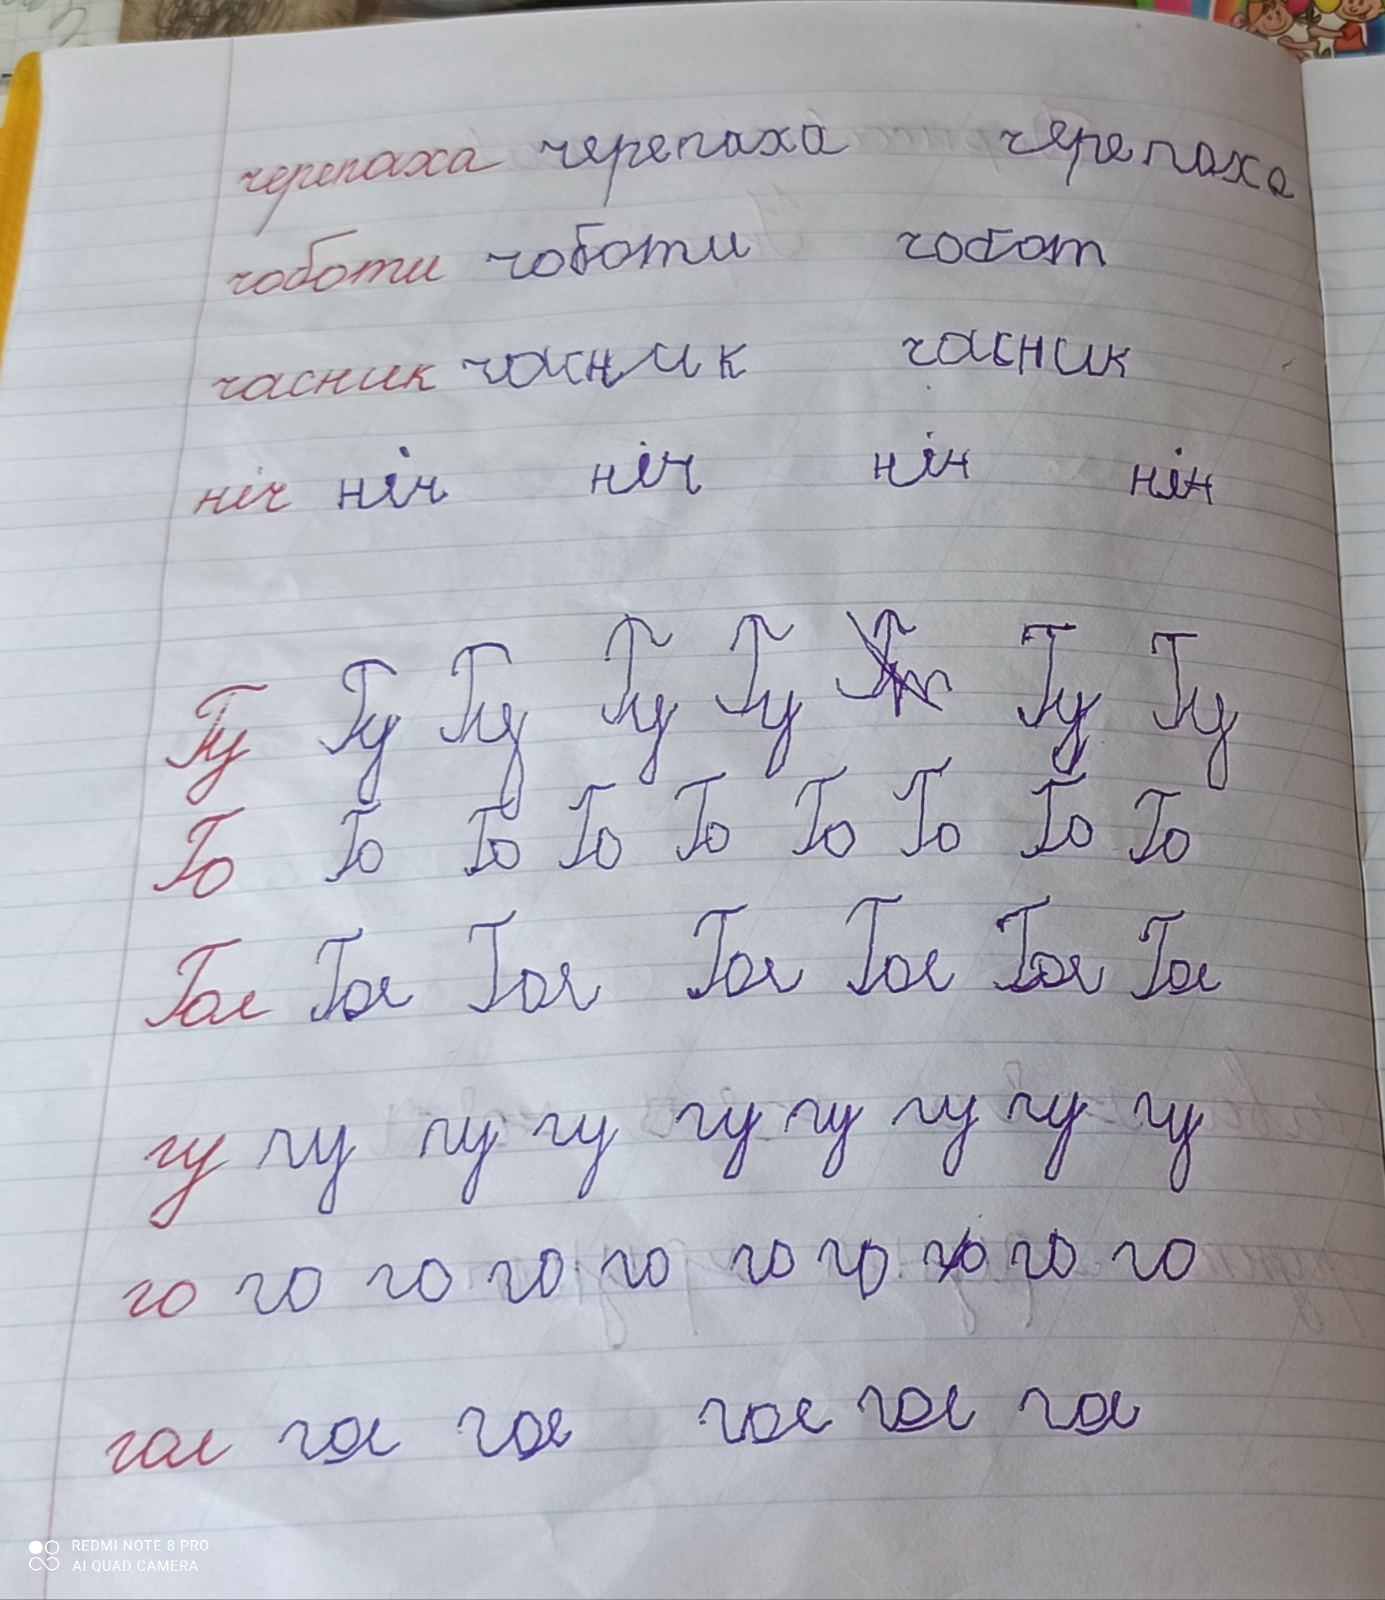 черепаха черепаха черепаха
чоботи чоботи чобот
часник часник часник
ніч ніч ніч нін нін
Гу Гу Гу Гу Гу Гу Гу
Го Го Го Го Го Го Го Го Го
Гал Гал Гал Гал Гал Гал Гал
гу гу гу гу гу гу гу гу гу
го го го го го го го го го го
гал гал гал гал гал гал
REDMI NOTE 8 PRO
AI QUAD CAMERA